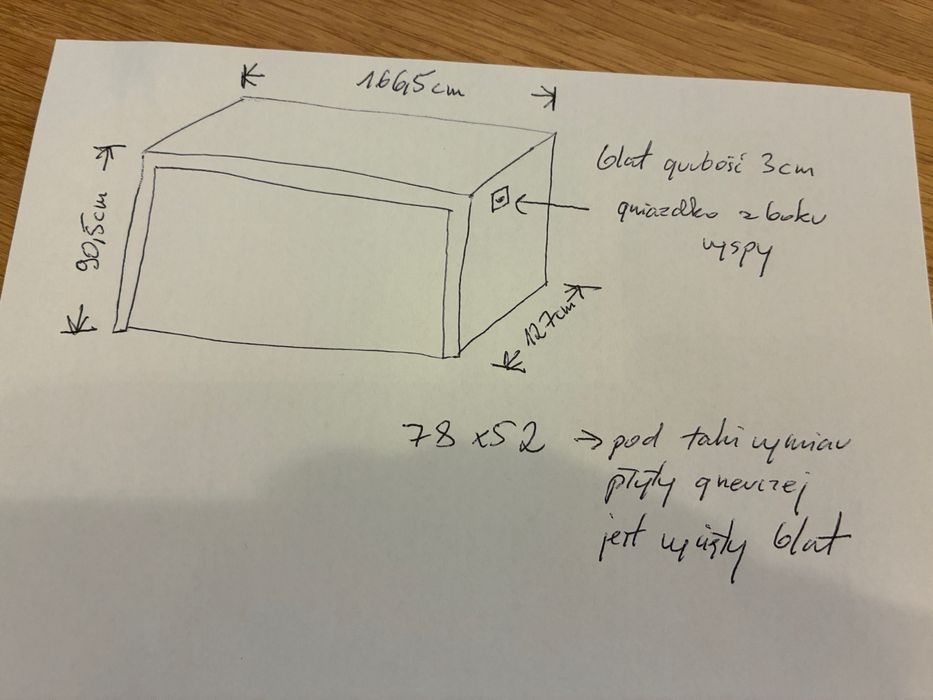 166,5cm
90,5cm
blat grubość 3cm
gniazdko z boku
wyspy
127cm
78 x 52 → pod taki wymiar
płyty grzewczej
jest wycięty blat